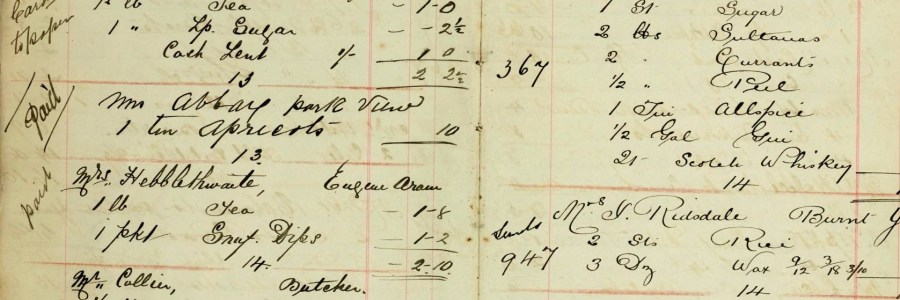 ½ lb Tea - 1-0
1 " Lp. Sugar - - 2½
Cash Lent 1/- 1 0
13 2 2½
Paid
Mrs Abbay park View
1 tin Apricots 10
13.
paid
Mrs. Hebblethwaite, Eugene Aram
1 lb Tea - 1-8
1 pkt Snuf. Dips - 1-2
14. - 2-10
Mr. Collier, Butcher.
1 St Sugar
2 lbs Sultanas
367 2 " Currants
½ " Peel
1 Tin Allspice
½ Gal Gin
2t Scotch Whiskey
14
Mrs J. Ridsdale Burnt
2 Sts Rice
947 3 Dz Wax 9/12 3/18 3/10
14